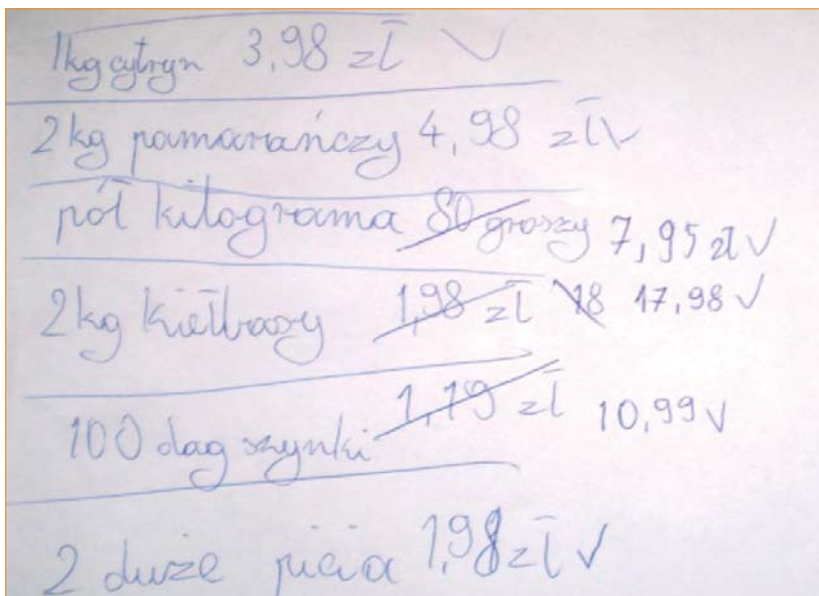 1kg cytryn 3,98 zł √
2kg pamarańczy 4,98 zł √
pół kilograma 80 groszy 7,95 zł √
2kg kiełbasy 1,98 zł 18 17,98 √
100 dag szynki 1,19 zł 10,99 √
2 duże picia 1,98 zł √